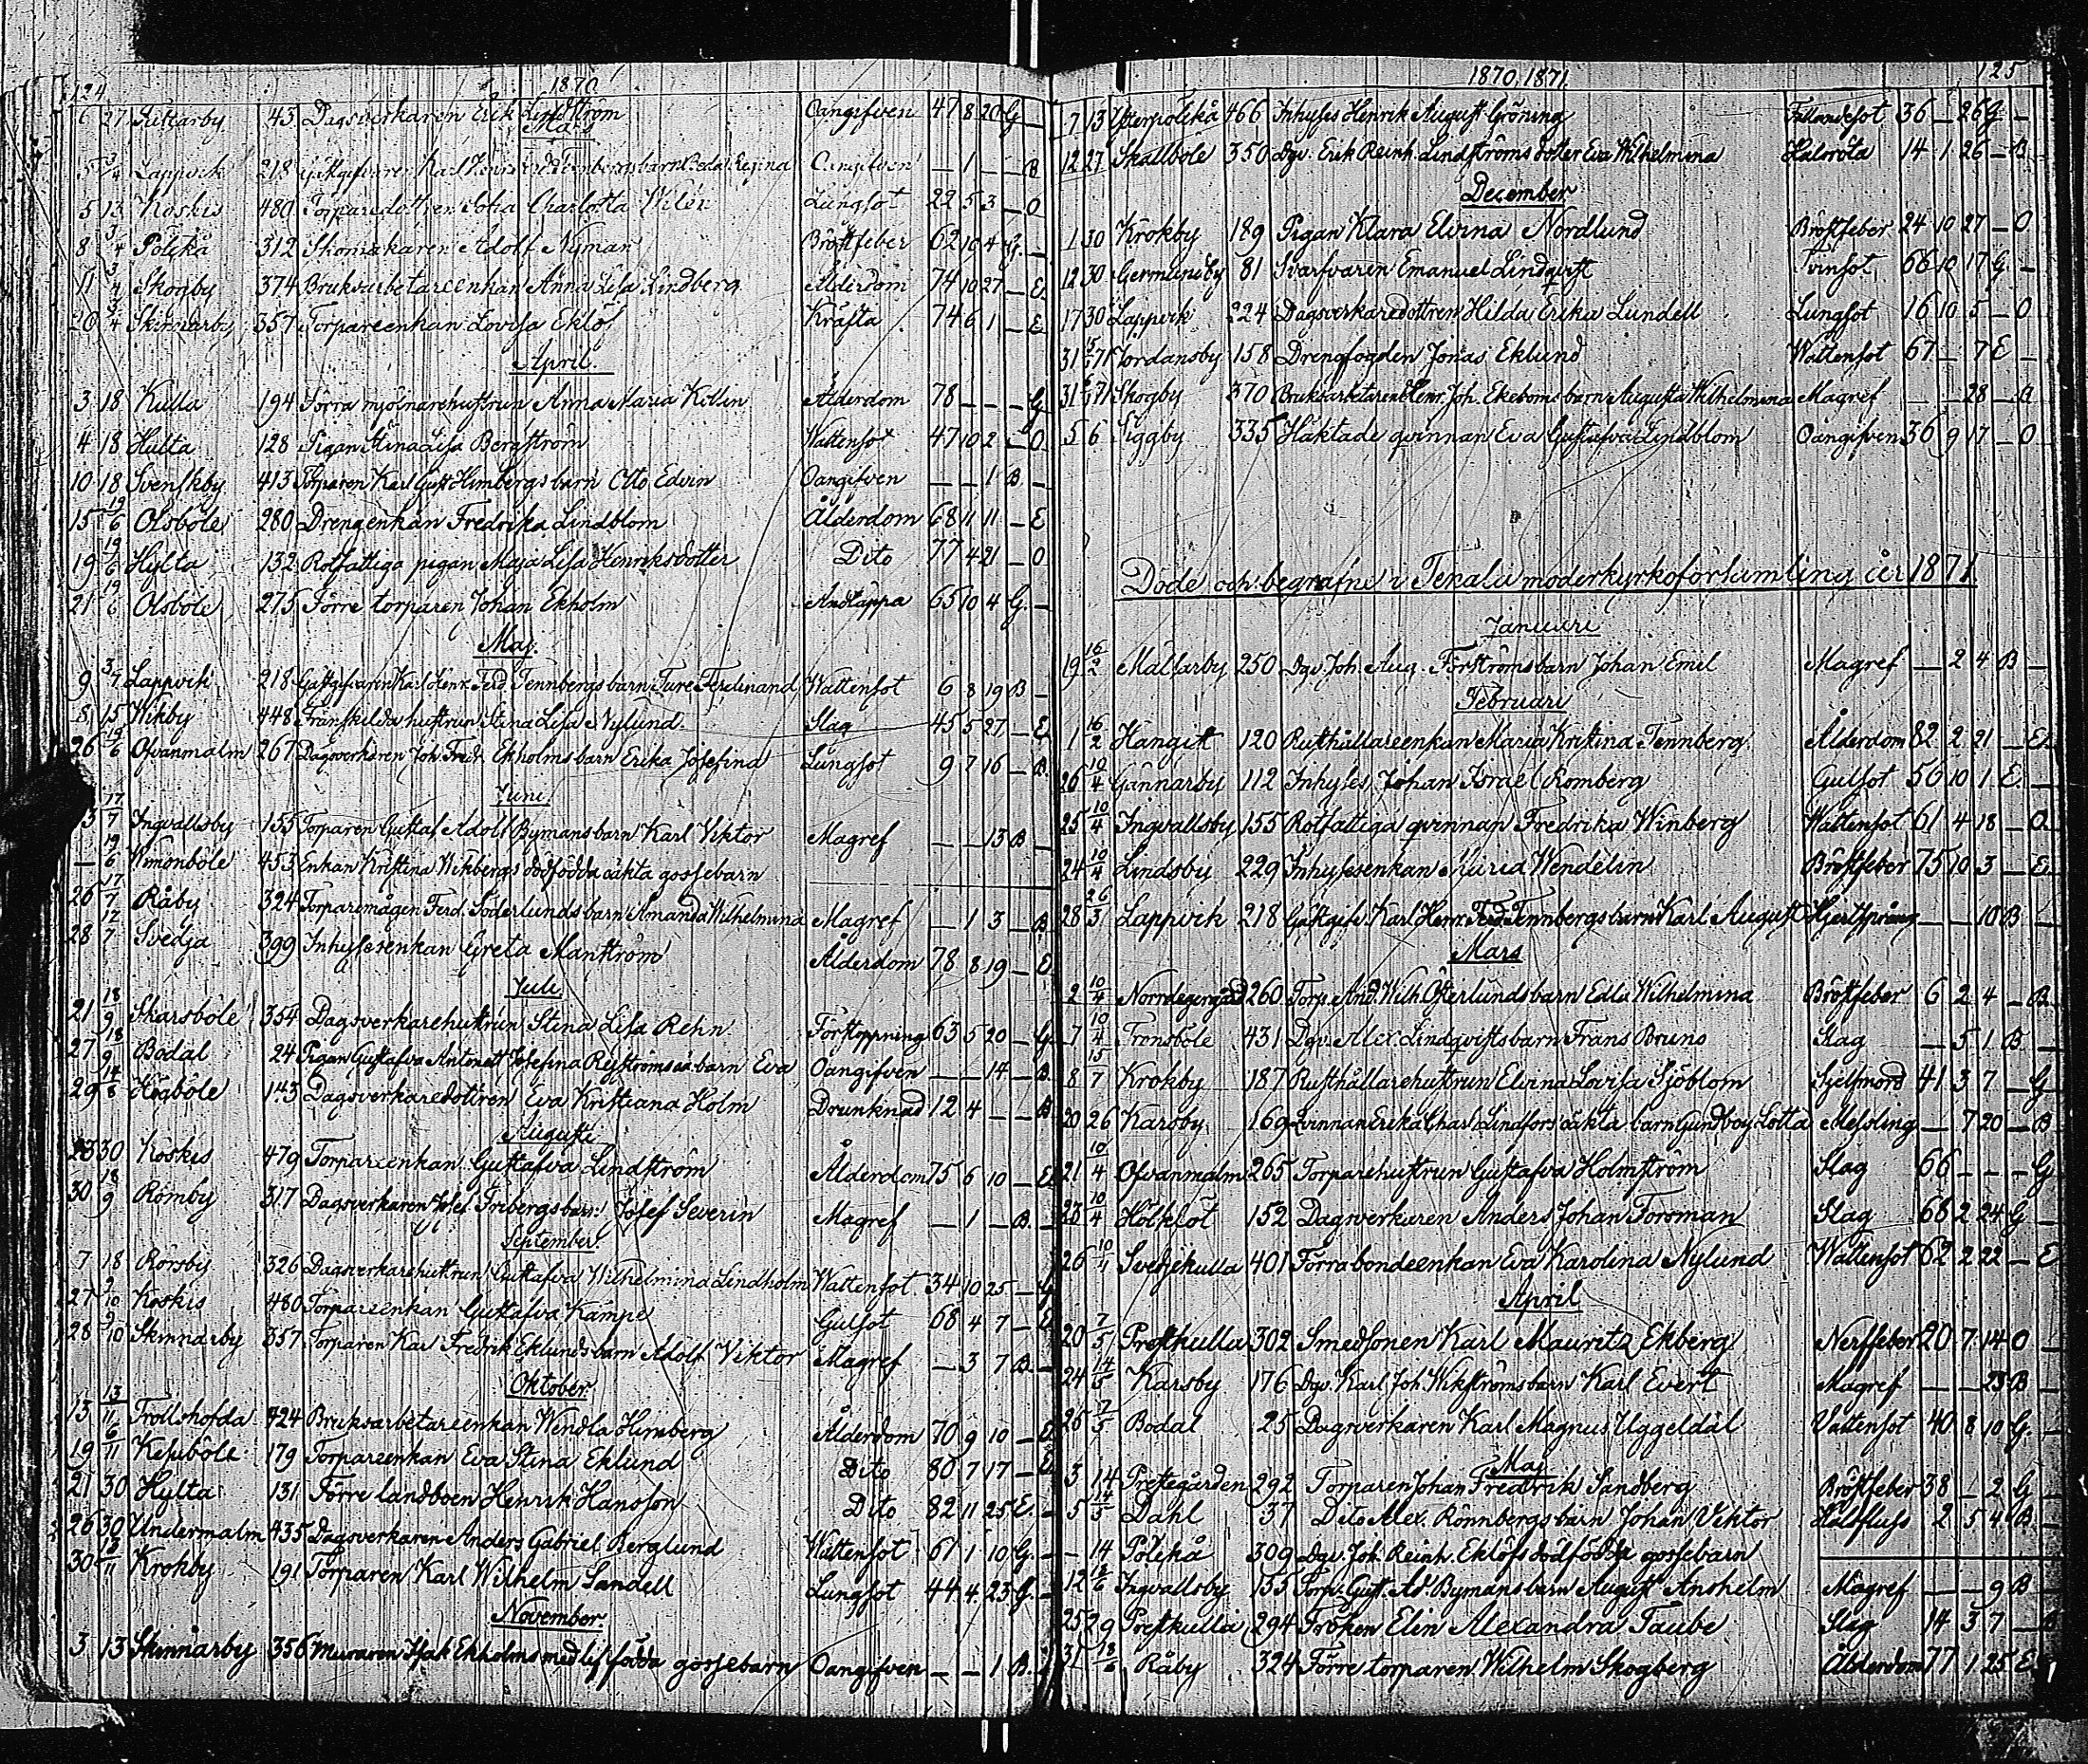 124
1870
6 27 43 Dagsverkaren Erik Lindström Oangifven 47 8 20 G —
Mars
5 3/4 Lappvik 218 Gästgifvaren Karl Henr. Ferd. Tennbergs barn Beda Regina Oangifven — 1 — — B
5 13 Koskis 480 Torparedottren Sofia Charlotta Wilén Lungsot 22 5 3 — O
8 3/4 Pölekå 312 Skomakaren Adolf Nyman Bröstfeber 62 10 4 G. —
11 3/4 Skogby 374 Bruksarbetareenkan Anna Lisa Lindberg Ålderdom 74 10 27 — E.
20 3/4 Skinnarby 357 Torpareenkan Lovisa Eklöf Kräfta 74 6 1 — E
April.
3 18 Kulla 194 Förra mjölnarehustrun Anna Maria Kollin Ålderdom 78 — — — G
4 18 Hulta 128 Pigan Stina Lisa Bergström Wattensot 47 10 2 — O
10 18 Svenskby 413 Torparen Karl Gust Himbergs barn Otto Edvin Oangifven — — 1 B —
15 19/6 Olsböle 280 Drengenkan Fredrika Lindblom Ålderdom 68 11 11 — E
19 19/6 Hylta 132 Rotfattiga pigan Maja Lisa Henriksdotter Dito 77 4 21 — O
21 19/6 Olsböle 275 Förre torparen Johan Ekholm Andtäppa 65 10 4 G. —
Maj.
9 3/7 Lappvik 218 Gästgifvaren Karl Henr. Ferd Tennbergs barn Ture Ferdinand Wattensot 6 8 19 B —
8 15 Wikby 448 Frånskilda hustrun Stina Lisa Nylund. Slag 45 5 27 — E
26 19/6 Ofvanmalm 267 Dagsverkaren Joh. Fredr. Ekholms barn Erika Josefina Lungsot 9 7 16 — B.
Juni.
3 17/7 Ingvallsby 155 Torparen Gustaf Adolf Bymans barn Karl Viktor Magref — — 13 B —
— 19/6 Wimonböle 453 Enkan Kristina Wikbergs dödfödda oäkta gossebarn
26 17/7 Råby 324 Torparemågen Ferd. Söderlunds barn Amanda Wilhelmina Magref — 1 3 — B
28 17/7 Svedja 399 Inhysesenkan Greta Manström Ålderdom 78 8 19 — E
Juli.
21 18/9 Skarsböle 354 Dagsverkarehustrun Stina Lisa Rehn Förstoppning 63 5 20 — G
27 18/9 Bodal 24 Pigan Gustafva Antonett Josefina Reiströms oä barn Eva Oangifven — — 14 — B.
29 14/8 Högböle 143 Dagsverkaredottren Eva Kristiana Holm Drunknad 12 4 — — B
Augusti
23 30 Koskis 479 Torpareenkan Gustafva Lindström Ålderdom 75 6 10 — E
30 18/9 Römby 317 Dagsverkaren Josef Fribergs barn Josef Severin Magref — 1 — B. —
September.
7 18 Rorsby 326 Dagsverkarehustrun Gustafva Wilhelmina Lindholm Wattensot. 34 10 25 — G
27 9/10 Koskis 480 Torpareenkan Gustafva Kämpe Gulsot 68 4 7 — E
28 9/10 Skinnarby 357 Torparen Karl Fredrik Eklunds barn Adolf Viktor Magref — 3 7 B. —
Oktober
13 13/11 Trollshofda 424 Bruksarbetareenkan Wendla Himberg Ålderdom 70 9 10 — E
19 6/11 Kesuböle 179 Torpareenkan Eva Stina Eklund Dito 80 7 17 — E
21 30 Hylta 131 Förre landboen Henrik Hansson Dito 82 11 25 E. —
26 30 Undermalm 435 Dagsverkaren Anders Gabriel Berglund Wattensot 61 1 10 G. —
30 13/11 Krokby 191 Torparen Karl Wilhelm Sandell Lungsot 44 4 23 G. —
November.
3 13 Skinnarby 356 Muraren Isak Ekholms med lif födda gossebarn Oangifven — — 1 B.
1870, 1871.
125
7 13 466 Inhyses Henrik August Gröning Fallandesot 36 — 26 G —
12 27 Skallböle 350 Dgv. Erik Reinh. Lindströms dotter Eva Wilhelmina Halsröta 14 1 26 — B
December
1 30 Krokby 189 Pigan Klara Elvina Nordlund Bröstfeber 24 10 27 — O
12 30 Germundsby 81 Svarfvaren Emanuel Lindqvist Tvinsot 66 10 17 G. —
17 30 Lappvik 224 Dagsverkaredottren Hilda Erika Lundell Lungsot 16 10 5 — O
31 Jordansby 158 Drengfogden Jonas Eklund Wattensot 67 — 7 E —
31 Skogby 370 Bruksarbetaren Henr. Joh. Ekeboms barn Augusta Wilhelmina Magref — — 28 — B
5 6 Siggby 335 Häktade qvinnan Eva Gustafva Lindblom Oangifven 36 9 17 — O
Döde och begrafne i Tenala moderkyrkoförsamling år 1871
Januari
19 16/2 Malsarby 250 Dgv. Joh. Aug. Forströms barn Johan Emil Magref — 2 4 B —
Februari
1 16/2 Hangist 120 Rusthållareenkan Maria Kristina Tennberg Ålderdom 82 2 21 — E.
26 10/4 Gännarby 112 Inhyses Johan Israel Romberg Gulsot 56 10 1 E. —
25 10/4 Ingvallsby 155 Rotfattiga qvinnan Fredrika Winberg Wattensot 61 4 18 — O
24 10/4 Lindsby 229 Inhysesenkan Maria Wendelin Bröstfeber 75 10 3 — E
28 26/3 Lappvik 218 Gästgifv. Karl Henr. Ferd Tennbergs barn Karl August Hjertsprång — — 10 B —
Mars
2 10/4 260 Torp. And. Wilh. Österlunds barn Edla Wilhelmina Bröstfeber 6 2 4 — B
7 10/4 Trönsböle 431 Dgv. Alex. Lindqvists barn Frans Bruno Slag — 5 1 B —
8 15/7 Krokby 187 Rusthållarehustrun Elvina Lovisa Sjöblom Sjelfmord 41 3 7 — G
20 26 Karsby 169 Qvinnan Erika Charl. Lindfors' oäkta barn Gundborg Lotta Messling — 7 20 — B
21 10/4 Ofvanmalm 265 Torparehustrun Gustafva Holmström Slag 66 — — — G
23 10/4 Hölklöt 152 Dagsverkaren Anders Johan Forsman Slag 68 2 24 G —
26 10/4 Svedjekulla 401 Förra bondeenkan Eva Karolina Nylund Wattensot 62 2 22 — E
April
20 7/5 Prostkulla 302 Smedsonen Karl Mauritz Ekberg Nerffeber 20 7 14 O —
24 14/5 Karsby 176 Dgv. Karl Joh Wikströms barn Karl Evert Magref — — 23 B —
26 7/5 Bodal 25 Dagsverkaren Karl Magnus Uggeldal Vattensot 40 8 10 G. —
Maj
3 14 Prestegården 292 Torparen Johan Fredrik Sandberg Bröstfeber 38 — 2 G —
5 14/5 Dahl 37 Dito Alex. Rönnbergs barn Johan Viktor Halsfluss 2 5 4 B —
— 14 Pölekå 309 Dgv. Joh. Reinh. Eklöfs dödfödda gossebarn
12 18/6 Ingvallsby 155 Torp. Gust. Ad. Bymans barn August Anshelm Magref — — 9 B —
25 29 Prestkulla 294 Fröken Elin Alexandra Taube Slag 14 3 7 —
31 18/6 Råby 324 Förre torparen Wilhelm Skogberg Ålderdom 77 1 25 E